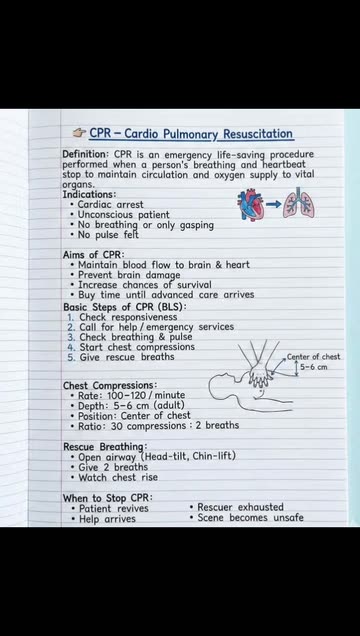 👉 CPR – Cardio Pulmonary Resuscitation
Definition: CPR is an emergency life-saving procedure
performed when a person's breathing and heartbeat
stop to maintain circulation and oxygen supply to vital
organs.
Indications:
• Cardiac arrest
• Unconscious patient
• No breathing or only gasping
• No pulse felt
Aims of CPR:
• Maintain blood flow to brain & heart
• Prevent brain damage
• Increase chances of survival
• Buy time until advanced care arrives
Basic Steps of CPR (BLS):
1. Check responsiveness
2. Call for help / emergency services
3. Check breathing & pulse
4. Start chest compressions
5. Give rescue breaths
Center of chest
5–6 cm
Chest Compressions:
• Rate: 100–120 / minute
• Depth: 5–6 cm (adult)
• Position: Center of chest
• Ratio: 30 compressions : 2 breaths
Rescue Breathing:
• Open airway (Head-tilt, Chin-lift)
• Give 2 breaths
• Watch chest rise
When to Stop CPR:
• Patient revives
• Help arrives
• Rescuer exhausted
• Scene becomes unsafe